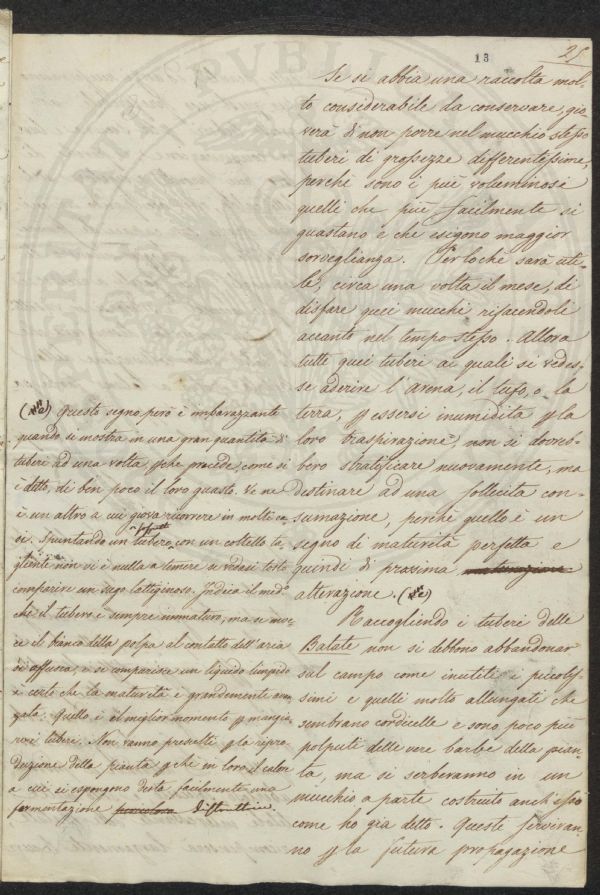 13
25
Se si abbia una raccolta mol-
to considerabile da conservare, gio
verà di non porre nel mucchio stesso
tuberi di grossezze differentissime,
perchè sono i più voluminosi
quelli che più facilmente si
guastano e che esigono maggior
sorveglianza. Perlochè sarà uti-
le, circa una volta il mese, di
disfare quei mucchi rifacendoli
accanto nel tempo stesso. Allora
tutti quei tuberi ai quali si vedes-
se aderire l'arena, il tufo, o la
terra, p essersi inumidita p la
loro traspirazione, non si dovreb-
bero stratificare nuovamente, ma
destinare ad una sollecita con-
sumazione, perchè quello è un
segno di maturità perfetta e
quindi di prossima
alterazione.
Raccogliendo i tuberi delle
Batate non si debbono abbandonar
sul campo come inutili i piccolis-
simi e quelli molto allungati che
sembrano cordicelle e sono poco più
polputi delle vere barbe della pian-
ta, ma si serberanno in un
mucchio a parte costruito anch'esso
come ho già detto. Queste serviran-
no p la futura propagazione
Questo segno però è imbarazzante
quando si mostra in una gran quantità di
tuberi ad una volta, pche precede, come si
è detto, di ben poco il loro guasto. Ve ne
è un altro a cui giova ricorrere in molti ca
si. Spuntando un tubero con un coltello ta
gliente non vi è nulla a temere se vedasi tosto
comparire un sugo lattiginoso. Indica il med°
che il tubero è sempre immaturo, ma se inve
ce il bianco della polpa al contatto dell'aria
si offusca, e se comparisce un liquido limpido
è certo che la maturità è grandemente avan
zata. Quello è il miglior momento p mangia
re i tuberi. Non vanno prescelti p la ripro-
duzione della pianta pche in loro il calore
a cui si espongono desta facilmente una
fermentazione distruttiva.